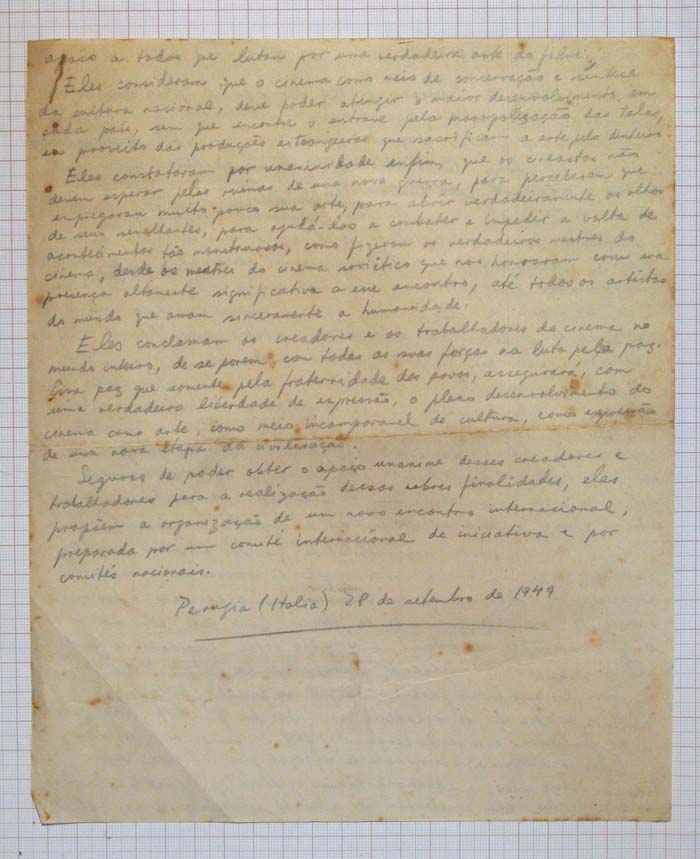 apoio a todos que lutam por uma verdadeira arte do filme.
Eles consideram que o cinema como meio de conservação e síntese
da cultura nacional, deve poder atingir o maior desenvolvimento em
cada país, sem que encontre o entrave pela monopolização das telas,
em proveito das produções estrangeiras que sacrificam a arte pelo dinheiro.
Eles constataram por unanimidade enfim, que os cineastas não
devem esperar pelas ruinas de uma nova guerra, para perceberem que
empregaram muito pouco sua arte, para abrir verdadeiramente os olhos
de seus semelhantes, para ajudá-los a combater e impedir a volta de
acontecimentos tão monstruosos, como fizeram os verdadeiros mestres do
cinema, desde os mestres do cinema soviético que nos honraram com sua
presença altamente significativa a esse encontro, até todos os artistas
do mundo que amam sinceramente a humanidade.
Eles conclamam os creadores e os trabalhadores do cinema no
mundo inteiro, de se porem com todas as suas forças na luta pela paz.
Essa paz que somente pela fraternidade dos povos, assegurará, com
uma verdadeira liberdade de expressão, o pleno desenvolvimento do
cinema como arte, como meio incomparavel de cultura, como expressão
de uma nova etapa da civilisação.
Seguros de poder obter o apoio unanime desses creadores e
trabalhadores para a realização dessas nobres finalidades, eles
propõem a organização de um novo encontro internacional,
preparada por um comité internacional de iniciativa e por
comités nacionais.
Perugia (Italia) 28 de setembro de 1949